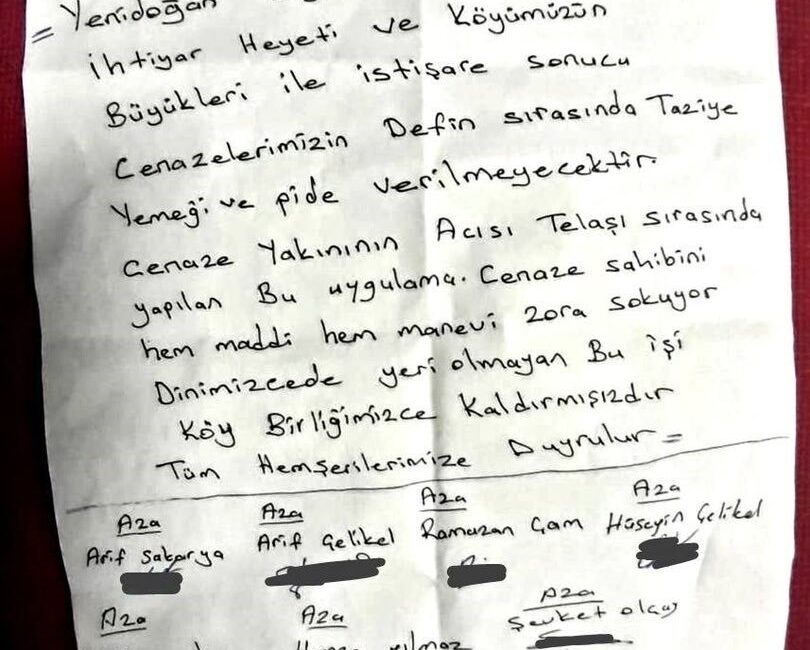 = Yenidoğan
ihtiyar Heyeti ve Köyümüzün
Büyükleri ile istişare sonucu
Cenazelerimizin Defin sırasında Taziye
Yemeği ve pide verilmeyecektir.
Cenaze Yakınının Acısı Telaşı sırasında
yapılan Bu uygulama. Cenaze sahibini
hem maddi hem manevi zora sokuyor
Dinimizcede yeri olmayan Bu işi
Köy Birliğimizce Kaldırmışızdır
Tüm Hemşerilerimize Duyrulur =
Aza Aza Aza Aza
Arif Sakarya Arif Çelikel Ramazan Çam Hüseyin Çelikel
Aza Aza Aza
Şevket olcay